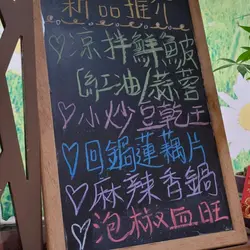 新品推介
♡涼拌鮮皺
[紅油/蒜蓉
♡小炒豆乾王
♡回鍋蓮藕片
♡麻辣香鍋
♡泡椒血旺